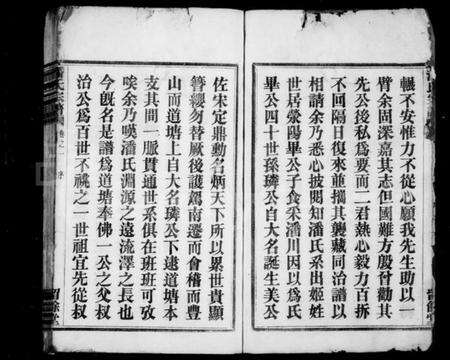 輾不安惟力不從心願我先生助以一
臂余固深嘉其志但國難方殷曾勸其
先公後私爲要而二君熱心毅力百折
不回隔日復來並攜其襲藏同治譜以
相請余乃悉心披閱知潘氏系出姬姓
世居滎陽畢公子食采潘川因以爲氏
畢公四十世孫璘公自大名誕生美公
佐宋定鼎勳名炳天下所以累世貴顯
簪纓勿替厥後護蹕南遷而會稽而豐
山而道塘上自大名璘公下逮道塘本
支其間一脈貫通世系俱在班班可攷
唉余乃嘆潘氏淵源之遠流澤之長也
今旣名是譜爲道塘奉佛一公之父叔
治公爲百世不祧之一世祖宜先從叔
潘氏宗譜
卷之一
序